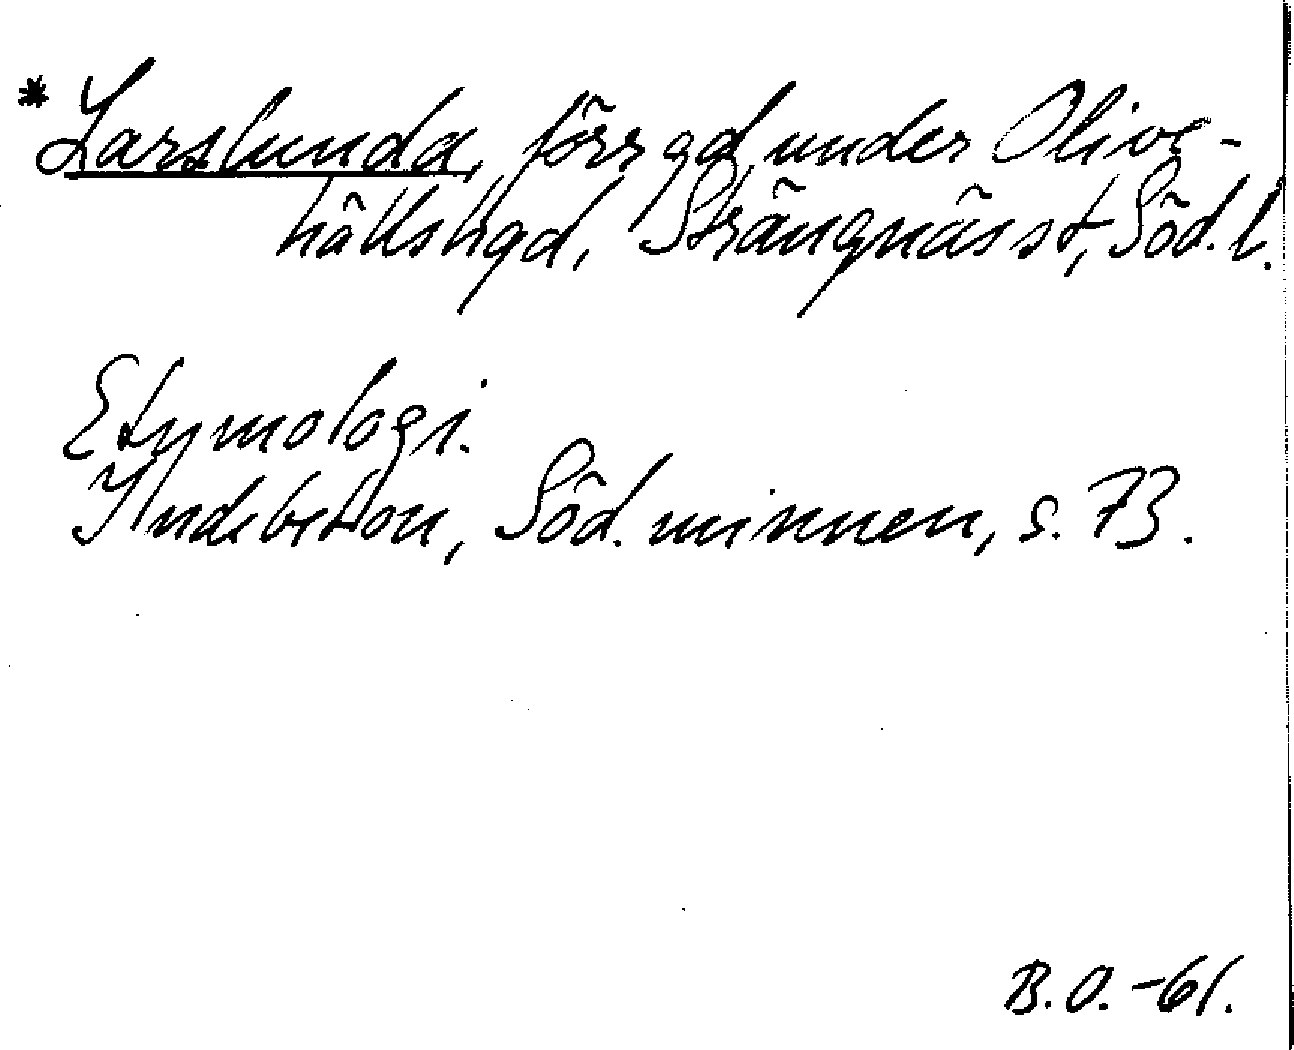 * Larslunda, förr gd under Olive-
hälls hgd, Strängnäs st, Söd. l.
Etymologi.
I Indebetou, Söd. minnen, s. 73.
B. O. -61.